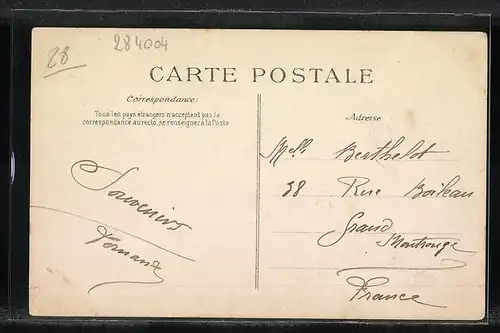 28
284004
CARTE POSTALE
Correspondance:
Tous les pays étrangers n'acceptent pas la
correspondance au recto, se renseigner à la Poste
Souvenirs
Fernand
Adresse
Melle Berthelot
38 Rue Boileau
Grand
Montrouge
France